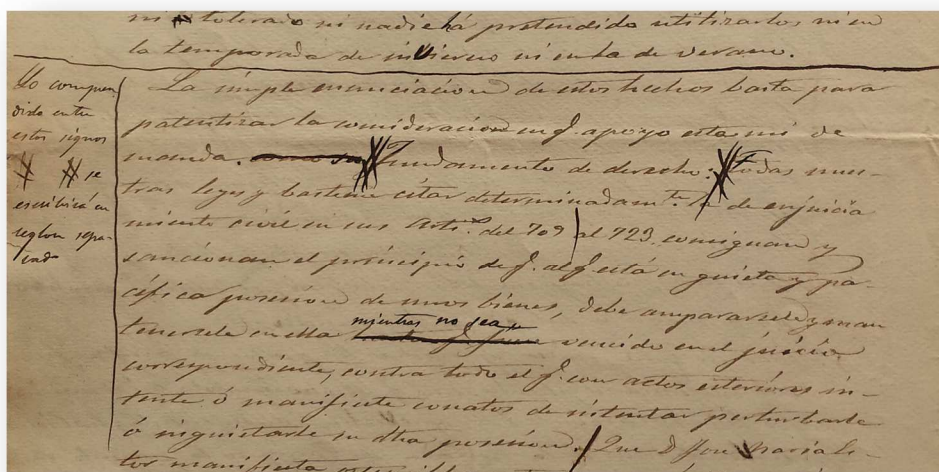 ni tolerado ni nadie há pretendido utilizarlos ni en
la temporada de invierno ni en la de verano.
Lo compren
dido entre
estos signos
# # se
escribirá en
reglon sepa-
rado
La simple enunciacion de estos hechos basta para
patentizar la consideracion en q. apoyo esta mi de
manda. # Fundamento de derecho: # Todas nues-
tras leyes y bastene citar determinadam.te la de enjuicia
miento civil en sus arts. del 709 al 723. consignan y
sancionan el principio de q. al q. está en quieta y pa-
cífica posesion de unos bienes, debe amparársele y man
tenersele en ella mientras no sea vencido en el juicio
correspondiente, contra todo el q. con actos esteriores in-
tente ó manifieste conatos de intentar perturbarle
ó inquietarle en dha posesion. Que D.
tor manifiesta